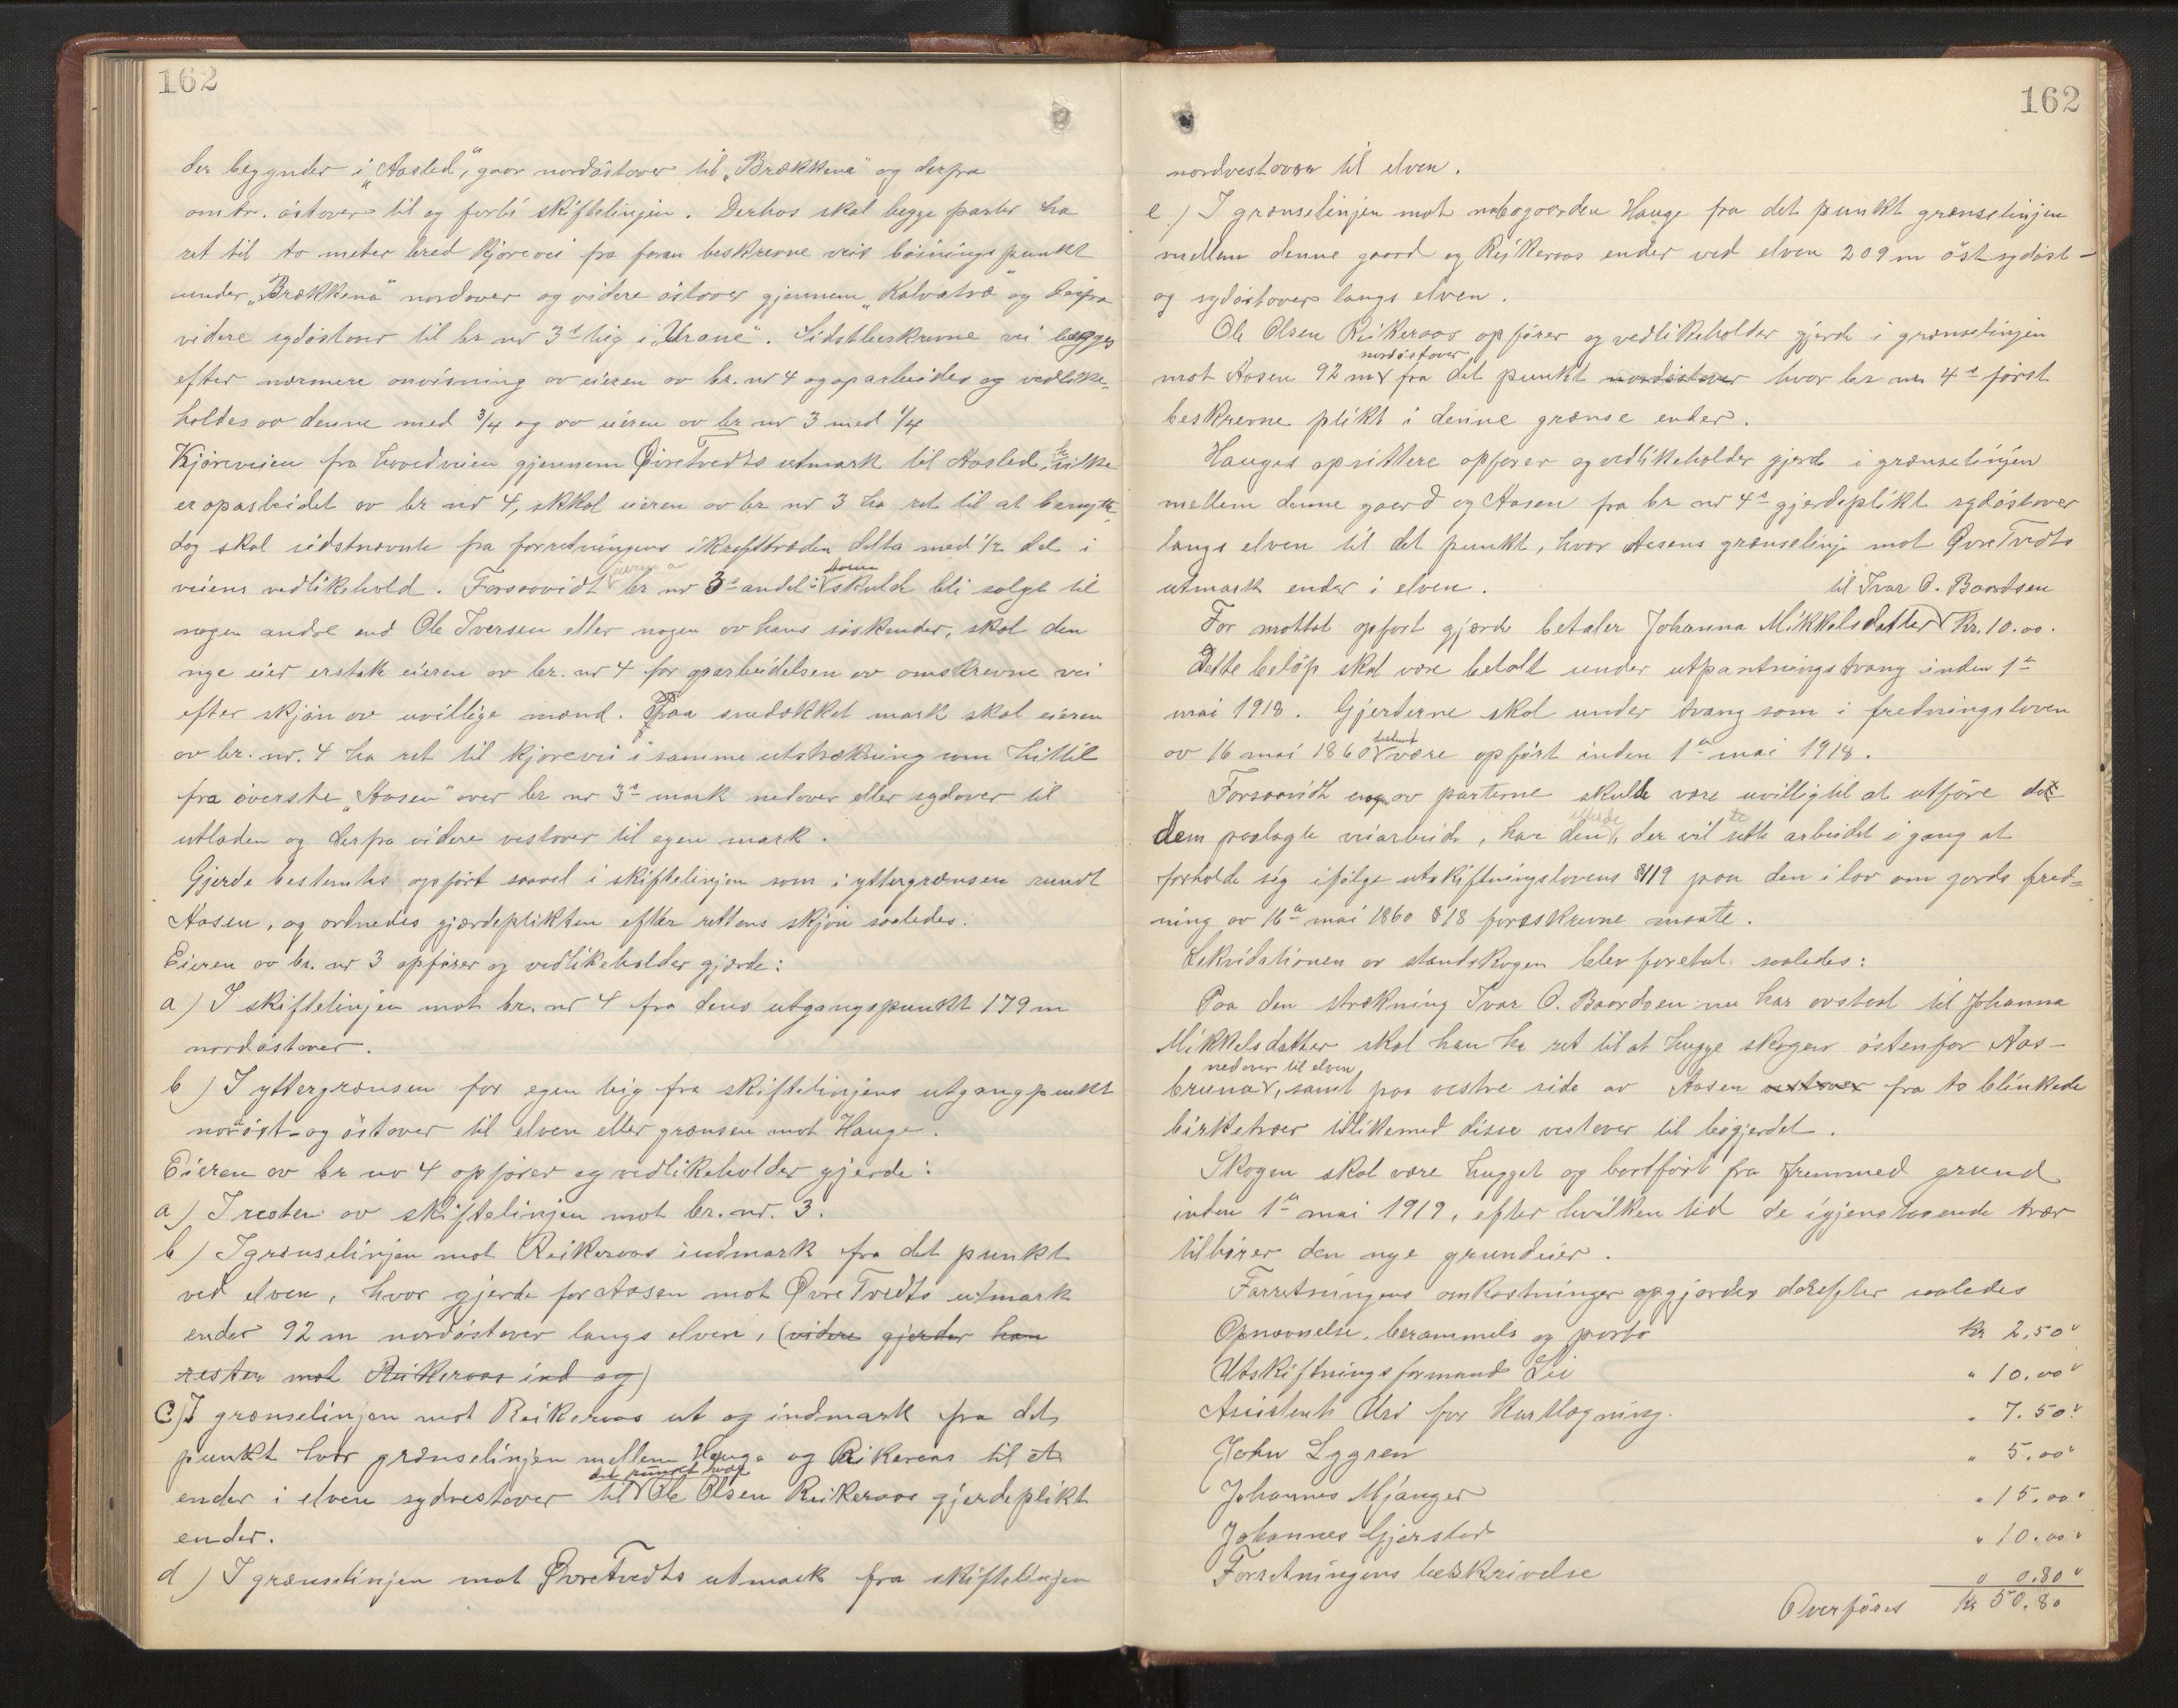 162
der begynder i „Aasled“, gaar nordöstover til „Brækkena“ og derfra
omtr. östover til og forbi skiftelinjen. Derhos skal begge parter ha
ret til to meter bred kjörevei fra foran beskrevne veis böinings punkt
under „Brækkena“ nordover og videre östover gjennem „Kalvatræ“ og derfra
videre sydöstover til br nr 3s teig i „Urane“. Sidstbeskrevne vei lægges
efter nærmere anvisning av eieren av br. nr 4 og oparbeides og vedlike=
holdes av denne med 3/4 og av eieren av br nr 3 med 1/4
Kjöreveien fra hovedveien gjennem ØvreTvedts utmark til Aasled, hvilken
er oparbeidet av br nr 4, skkal eieren av br nr 3 ha ret til at benytte,
dog skal sidstnævnte fra forretningens ikrafttræden delta med 1/2 del i
veiens vedlikehold. Forsaavidt eieren av br nr 3s andel i Aasen skulde bli solgt til
nogen anden end Ole Iversen eller nogen av hans söskender, skal den
nye eier erstatte eieren av br. nr 4 for oparbeidelsen av omskrevne vei
efter skjön av uvillige mænd. Paa snedækket mark skal eieren
av br. nr. 4 ha ret til kjörevei i samme utstrækning som hittil
fra överste „Aasen“ over br nr 3s mark nedover eller sydover til
utladen og derfra videre vestover til egen mark.
Gjerde bestemtes opfört saavel i skiftelinjen som i yttergrænsen rundt
Aasen, og ordnedes gjærdeplikten efter rettens skjön saaledes:
Eieren av br. nr 3 opförer og vedlikeholder gjærde:
a) I skiftelinjen mot br. nr 4 fra dens utgangspunkt 179 m
nordöstover.
b) I yttergrænsen for egen teig fra skiftelinjens utgangpunkt
nordöst- og östover til elven eller grænsen mot Hauge.
Eieren av br nr 4 opförer og vedlikeholder gjerde:
a) I resten av skiftelinjen mot br. nr. 3.
b) I grænselinjen mot Reikeraas indmark fra det punkt
ved elven, hvor gjerde for Aasen mot ØvreTvedts utmark
ender 92 m nordöstover langs elven, (videre gjerder han
resten mot Reikeraas ind og)
c) I grænselinjen mot Reikeraas ut og indmark fra det
punkt hvor grænselinjen mellem Hauge og Reikeraas til
ender i elven sydvestover til det punkt hvor Ole Olsen Reikeraas gjerdeplikt
ender.
d) I grænselinjen mot ØvreTvedts utmark fra skiftelinjen
162
nordvestover til elven.
e) I grænselinjen mot nabogaarden Hauge fra det punkt grænselinjen
mellem denne gaard og Reikeraas ender ved elven 209 m öst sydöst-
og sydöstover langs elven.
Ole Olsen Reikeraas opförer og vedlikeholder gjerde i grænselinjen
mot Aasen 92 m nordöstover fra det punkt nordöstover hvor br nr 4s först
beskrevne plikt i denne grænse ender.
Hauges opsittere opförer og vedlikeholder gjerde i grænselinjen
mellem denne gaard og Aasen fra br nr 4s gjerdeplikt sydöstover
langs elven til det punkt, hvor Aasens grænselinje mot ØvreTvedts
utmark ender i elven.
For mottat opfört gjerde betaler Johanna Mikkelsdatter til Ivar O. Baardsen Kr. 10.00.
Dette belöp skal være betalt under utpantningstvang inden 1ste
mai 1918. Gjerderne skal under tvang som i fredningsloven
av 16 mai 1860 bestemt være opfört inden 1ste mai 1918.
Forsaavidt nogen av parterne skulde være uvillig til at utföre det
dem paalagte veiarbeide, har den, der vil sætte arbeidet i gang at
forholde sig ifölge utskiftningslovens § 119 paa den i lov om jords fred=
ning av 16de mai 1860 § 18 foreskrevne maate.
Likvidationen av standskogen blev foretat saaledes:
Paa den strækning Ivar O. Baardsen nu har avstaat til Johanna
Mikkelsdatter skal han ha ret til at hugge skogen östenfor Aas-
bruna nedover til elven, samt paa vestre side av Aasen vestover fra to blinkede
birketrær likemed disse vestover til bögjerdet.
Skogen skal være hugget og bortfört fra fremmed grund
inden 1ste mai 1919, efter hvilken tid de igjenstaaende trær
tilhörer den nye grundeier.
Forretningens omkostninger opgjordes derefter saaledes
Opnævnelse, berammels og porto Kr 2.50
Utskiftningsformand Lie " 10.00
Assistent Uri for Kartlægning. " 7.50
John Lygren " 5.00
Johannes Mjanger " 15.00
Johannes Gjerstad " 10.00
Forretningens beskrivelse " 0.80
Overföres Kr 50.80